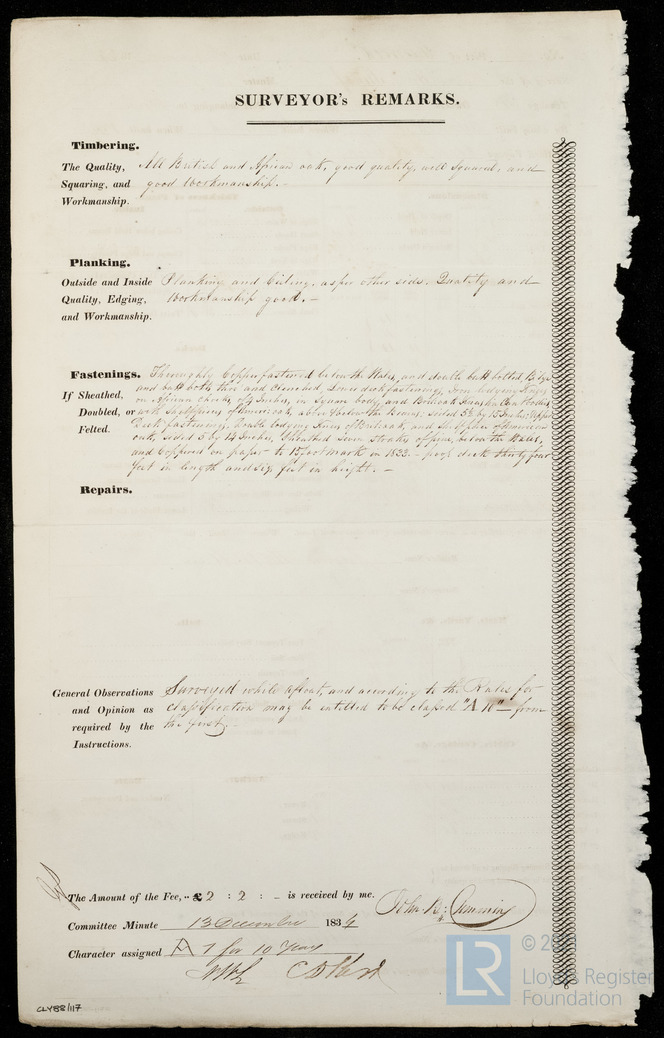 SURVEYOR's REMARKS.
Timbering.
The Quality, All British and African oak, good quality, well squared, and
Squaring, and good Workmanship. -
Workmanship.
Planking.
Outside and Inside Planking and Cieling, as per other side. Quality and
Quality, Edging, Workmanship good. -
and Workmanship.
Fastenings. Thoroughly Copper fastened below the Wales, and double butt bolted, Bilge
If Sheathed, and butt bolts thro' and Clenched, Lower deck fastenings, Iron lodging Knees
on African Chocks, of Inches, in Square body, and Cant bodies,
Doubled, or with of American oak, above & below the Beams, sided 5½ by 15 Inches; Upper
Felted. Deck fastenings, double lodging Knees of oak, and of American
oak, sided 5 by 14 Inches, Sheathed Seven strakes of fir, below the Wales,
and Coppered on paper to 15 foot Mark in 1833. - poop deck thirty four
feet in length and six feet in height. -
Repairs.
General Observations Surveyed while afloat, and according to the Rules for
and Opinion as classification may be entitled to be classed "A 10" from
required by the the first.
Instructions.
The Amount of the Fee, £2 : 2 : - is received by me. John R: Cumming
Committee Minute 13 December 1834
Character assigned A 1 for 10 Years
CLY88/117
LR
©
Lloyd's Register
Foundation